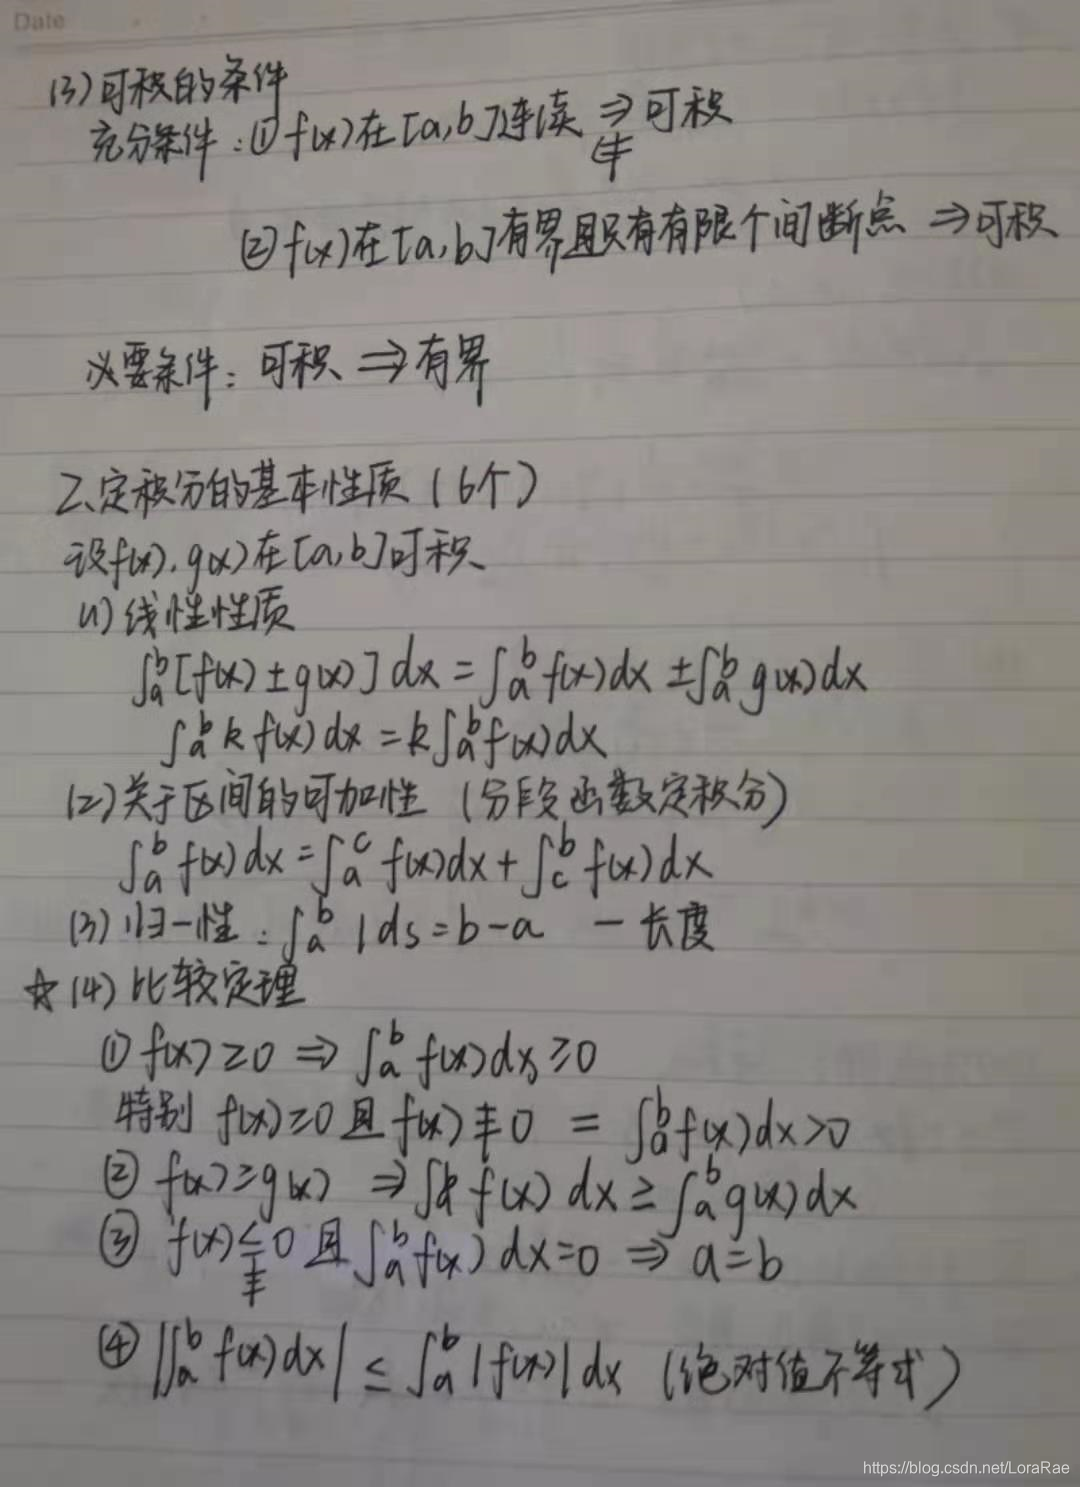 Date
(3)可积的条件
充分条件:①f(x)在[a,b]连续 ⇒可积
⇍
②f(x)在[a,b]有界且只有有限个间断点 ⇒可积
必要条件:可积 ⇒有界
2、定积分的基本性质(6个)
设f(x),g(x)在[a,b]可积
(1)线性性质
∫ₐᵇ[f(x)±g(x)]dx=∫ₐᵇf(x)dx±∫ₐᵇg(x)dx
∫ₐᵇkf(x)dx=k∫ₐᵇf(x)dx
(2)关于区间的可加性(分段函数定积分)
∫ₐᵇf(x)dx=∫ₐᶜf(x)dx+∫cᵇf(x)dx
(3)归一性:∫ₐᵇ1ds=b-a —长度
☆(4)比较定理
①f(x)≥0⇒∫ₐᵇf(x)dx≥0
特别 f(x)≥0且f(x)≢0 = ∫ₐᵇf(x)dx>0
②f(x)≥g(x) ⇒∫f(x)dx≥∫ₐᵇg(x)dx
③f(x)≤0且∫ₐᵇf(x)dx=0⇒a=b
≢
④|∫ₐᵇf(x)dx|≤∫ₐᵇ|f(x)|dx(绝对值不等式)
https://blog.csdn.net/LoraRae